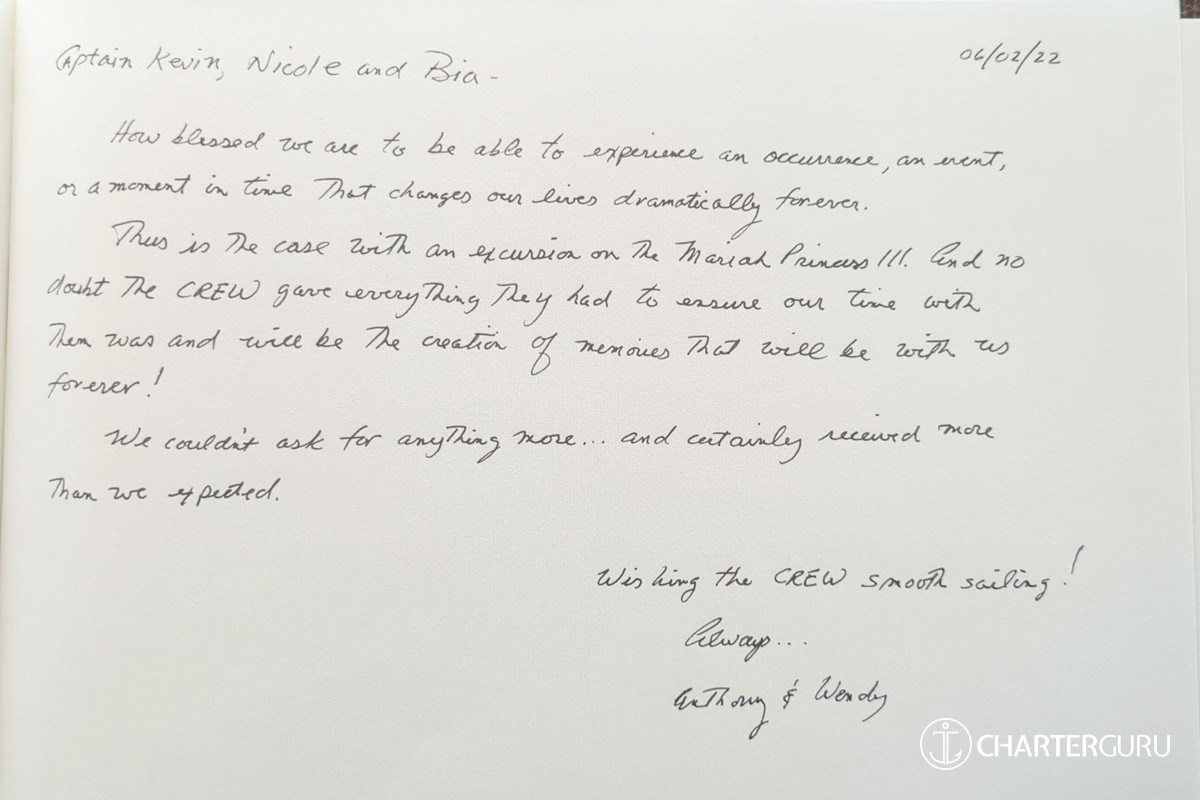 Captain Kevin, Nicole and Bia -
06/02/22
How blessed we are to be able to experience an occurrence, an event,
or a moment in time That changes our lives dramatically forever.
Thus is The case with an excursion on The Mariah Princess III. And no
doubt The CREW gave everyThing They had to ensure our time with
Them was and will be The creation of memories That will be with us
forever!
We couldn't ask for anyThing more... and certainly received more
Than we expected.
Wishing the CREW smooth sailing!
Always...
AnThony & Wendy
CHARTERGURU